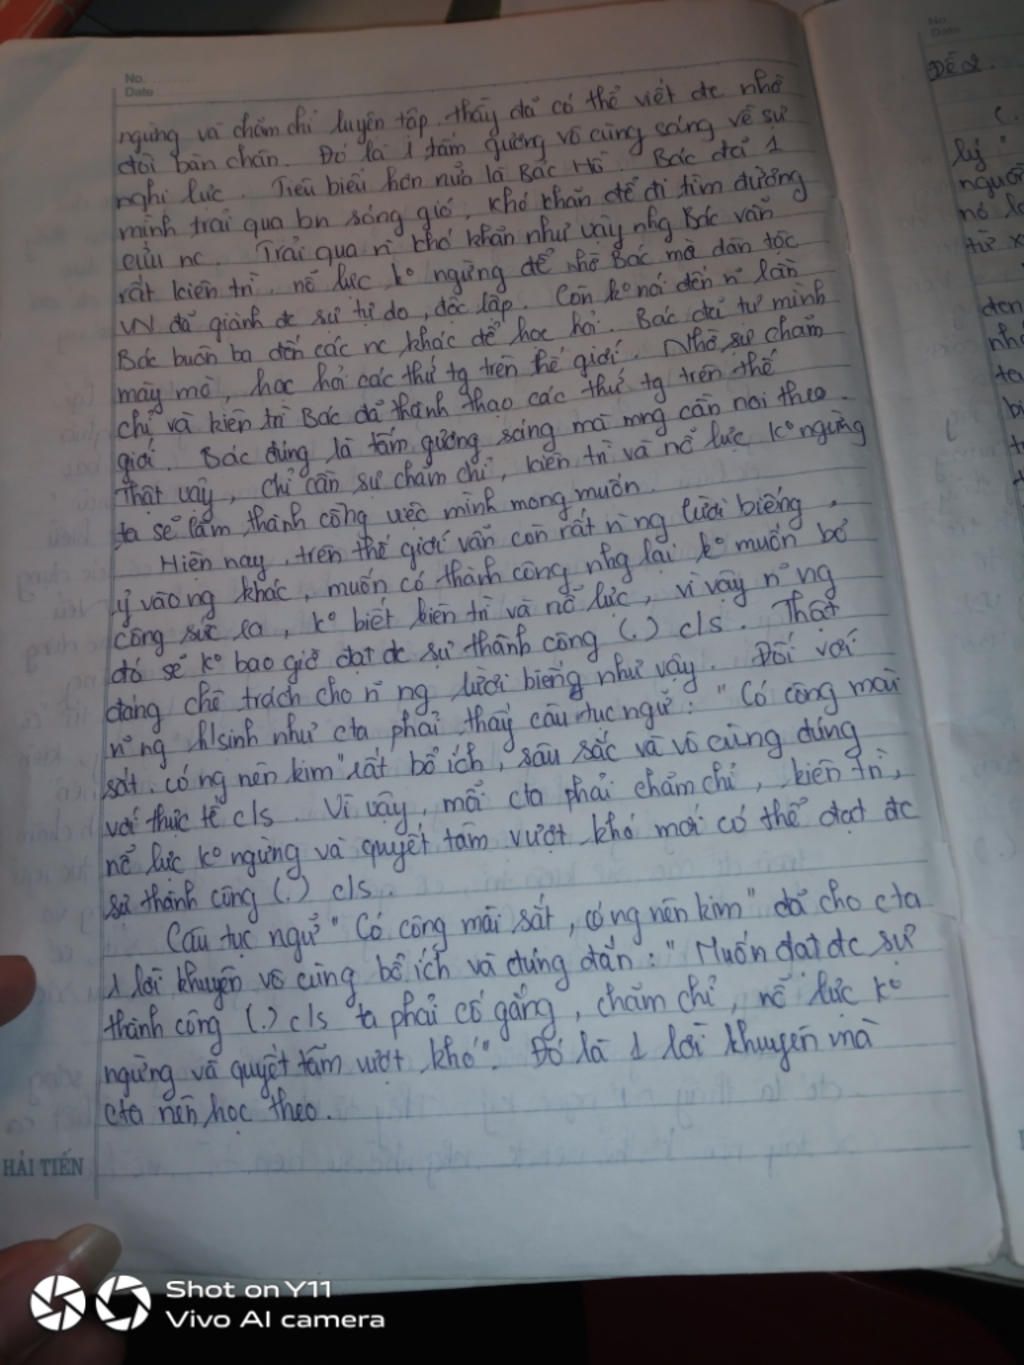 No.
Date
ngừng và chăm chỉ luyện tập thầy đã có thể viết đc nhờ
đôi bàn chân. Đó là 1 tấm gương vô cùng sáng về sự
nghị lực. Tiêu biểu hơn nữa là Bác Hồ. Bác đã 1
mình trải qua bn sóng gió, khó khăn để đi tìm đường
cứu nc. Trải qua n~ khó khăn như vậy nhg Bác vẫn
rất kiên trì, nỗ lực k° ngừng để nhờ Bác mà dân tộc
VN đã giành đc sự tự do, độc lập. Còn k° nói đến n~ lần
Bác buôn ba đến các nc khác để học hỏi. Bác đã tự mình
mày mò, học hỏi các thứ tg trên thế giới. Nhờ sự chăm
chỉ và kiên trì Bác đã thành thạo các thứ tg trên thế
giới. Bác đúng là tấm gương sáng mà mng cần noi theo.
Thật vậy, chỉ cần sự chăm chỉ, kiên trì và nỗ lực k° ngừng
ta sẽ làm thành công việc mình mong muốn.
Hiện nay, trên thế giới vẫn còn rất n~ ng lười biếng,
ỷ vào ng khác, muốn có thành công nhg lại k° muốn bỏ
công sức ra, k° biết kiên trì và nỗ lực, vì vậy n~ ng
đó sẽ k° bao giờ đạt đc sự thành công (.) c/s. Thật
đáng chê trách cho n~ ng lười biếng như vậy. Đối với
n~ ng h/sinh như cta phải thấy câu tục ngữ: "Có công mài
sắt, có ng nên kim" rất bổ ích, sâu sắc và vô cùng đúng
với thực tế c/s. Vì vậy, mỗi cta phải chăm chỉ, kiên trì,
nỗ lực k° ngừng và quyết tâm vượt khó mới có thể đạt đc
sự thành công (.) c/s.
Câu tục ngữ "Có công mài sắt, có ng nên kim" đã cho cta
1 lời khuyên vô cùng bổ ích và đúng đắn: "Muốn đạt đc sự
thành công (.) c/s ta phải cố gắng, chăm chỉ, nỗ lực k°
ngừng và quyết tâm vượt khó". Đó là 1 lời khuyên mà
cta nên học theo.
HẢI TIẾN
No.
Date
Đề 2.
lý
người
từ
Shot on Y11
Vivo AI camera